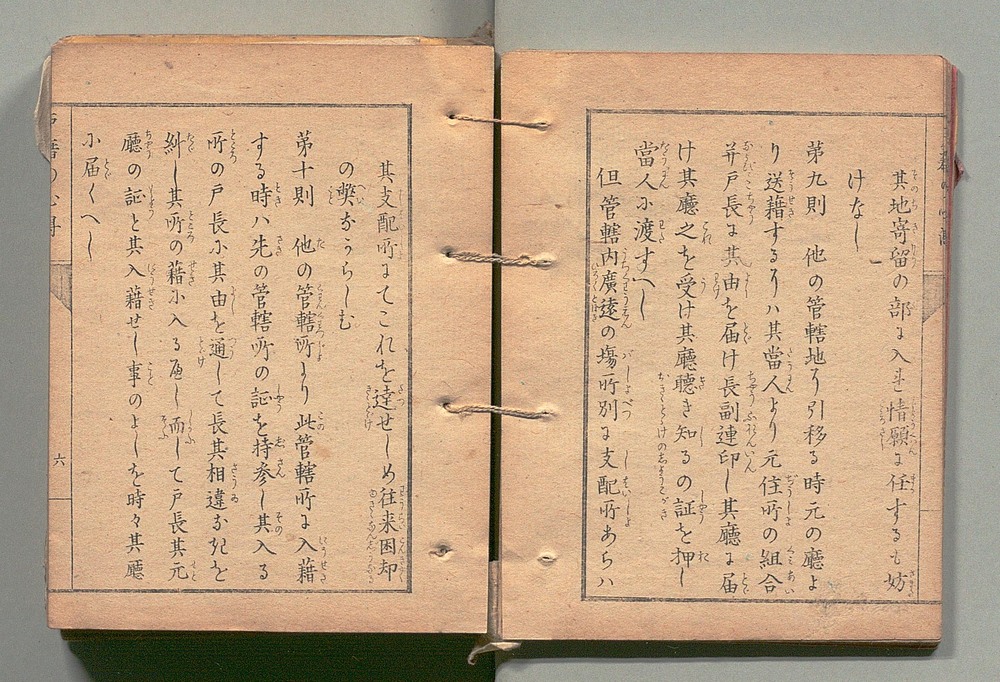 其地寄留の部に入るも情願に任するも妨
けなし
第九則　他の管轄地より引移る時元の廳よ
り送籍するハ其當人より元住所の組合
并戸長に其由を届け長副連印し其廳に届
け其廳之を受け其廳聴き知るの証を押し
當人に渡すへし
但管轄内廣遠の塲所別に支配所あらハ
其支配所にてこれを達せしめ往来困却
の獘なからしむ
第十則　他の管轄所より此管轄所に入籍
する時ハ先の管轄所の証を持参し其入る
所の戸長に其由を通して長其相違なきを
糾し其所の籍に入る而して戸長其元
廳の証と其入籍せし事のよしを時々其廳
に届くへし
六